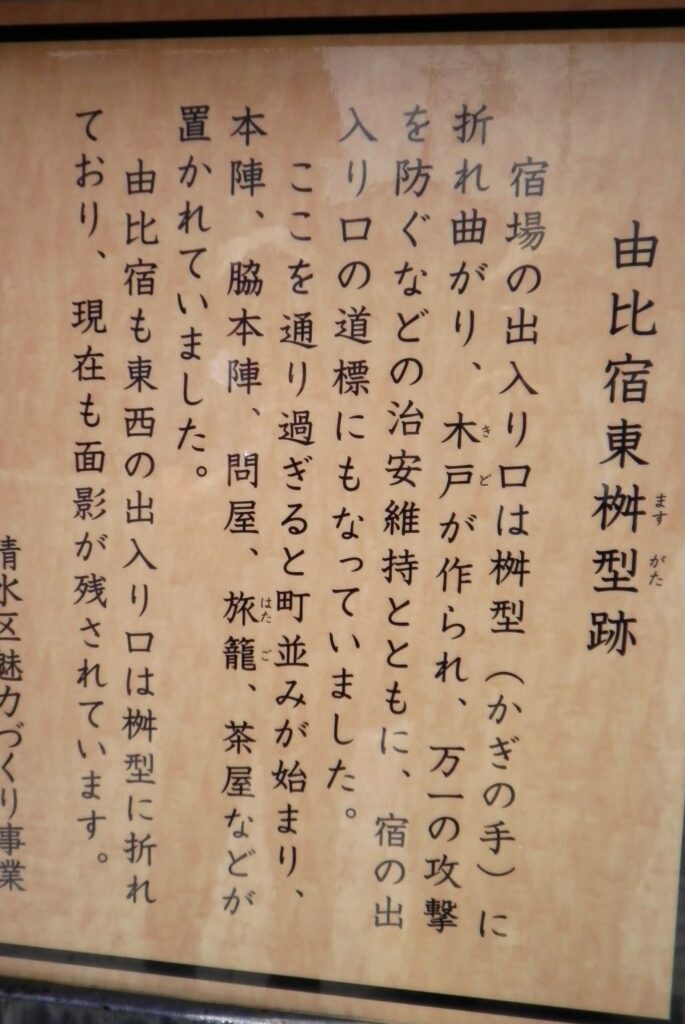 由比宿東桝型跡
ますがた
宿場の出入り口は桝型（かぎの手）に
折れ曲がり、木戸が作られ、万一の攻撃
きど
を防ぐなどの治安維持とともに、宿の出
入り口の道標にもなっていました。
ここを通り過ぎると町並みが始まり、
本陣、脇本陣、問屋、旅籠、茶屋などが
はたご
置かれていました。
由比宿も東西の出入り口は桝型に折れ
ており、現在も面影が残されています。
清水区魅力づくり事業